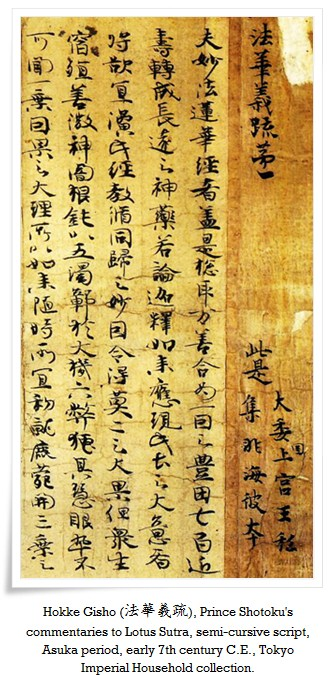 法華義疏第一
此是
大委国上宮王私
集非海彼本
夫妙法蓮華經者蓋是惣取万善合為一因之豊田七百近
壽轉成長遠之神藥若論迦釋如来應現此土之大意者
将欲宜演此經教脩同歸之妙因令得莫二之大果但衆生
宿殖善微神闇根鈍以五濁鄣於大機六弊掩其慧眼卒不
可聞一乗因果之大理所以如来随時所宜初就鹿苑開三乗之
Hokke Gisho (法華義疏), Prince Shotoku's
commentaries to Lotus Sutra, semi-cursive script,
Asuka period, early 7th century C.E., Tokyo
Imperial Household collection.